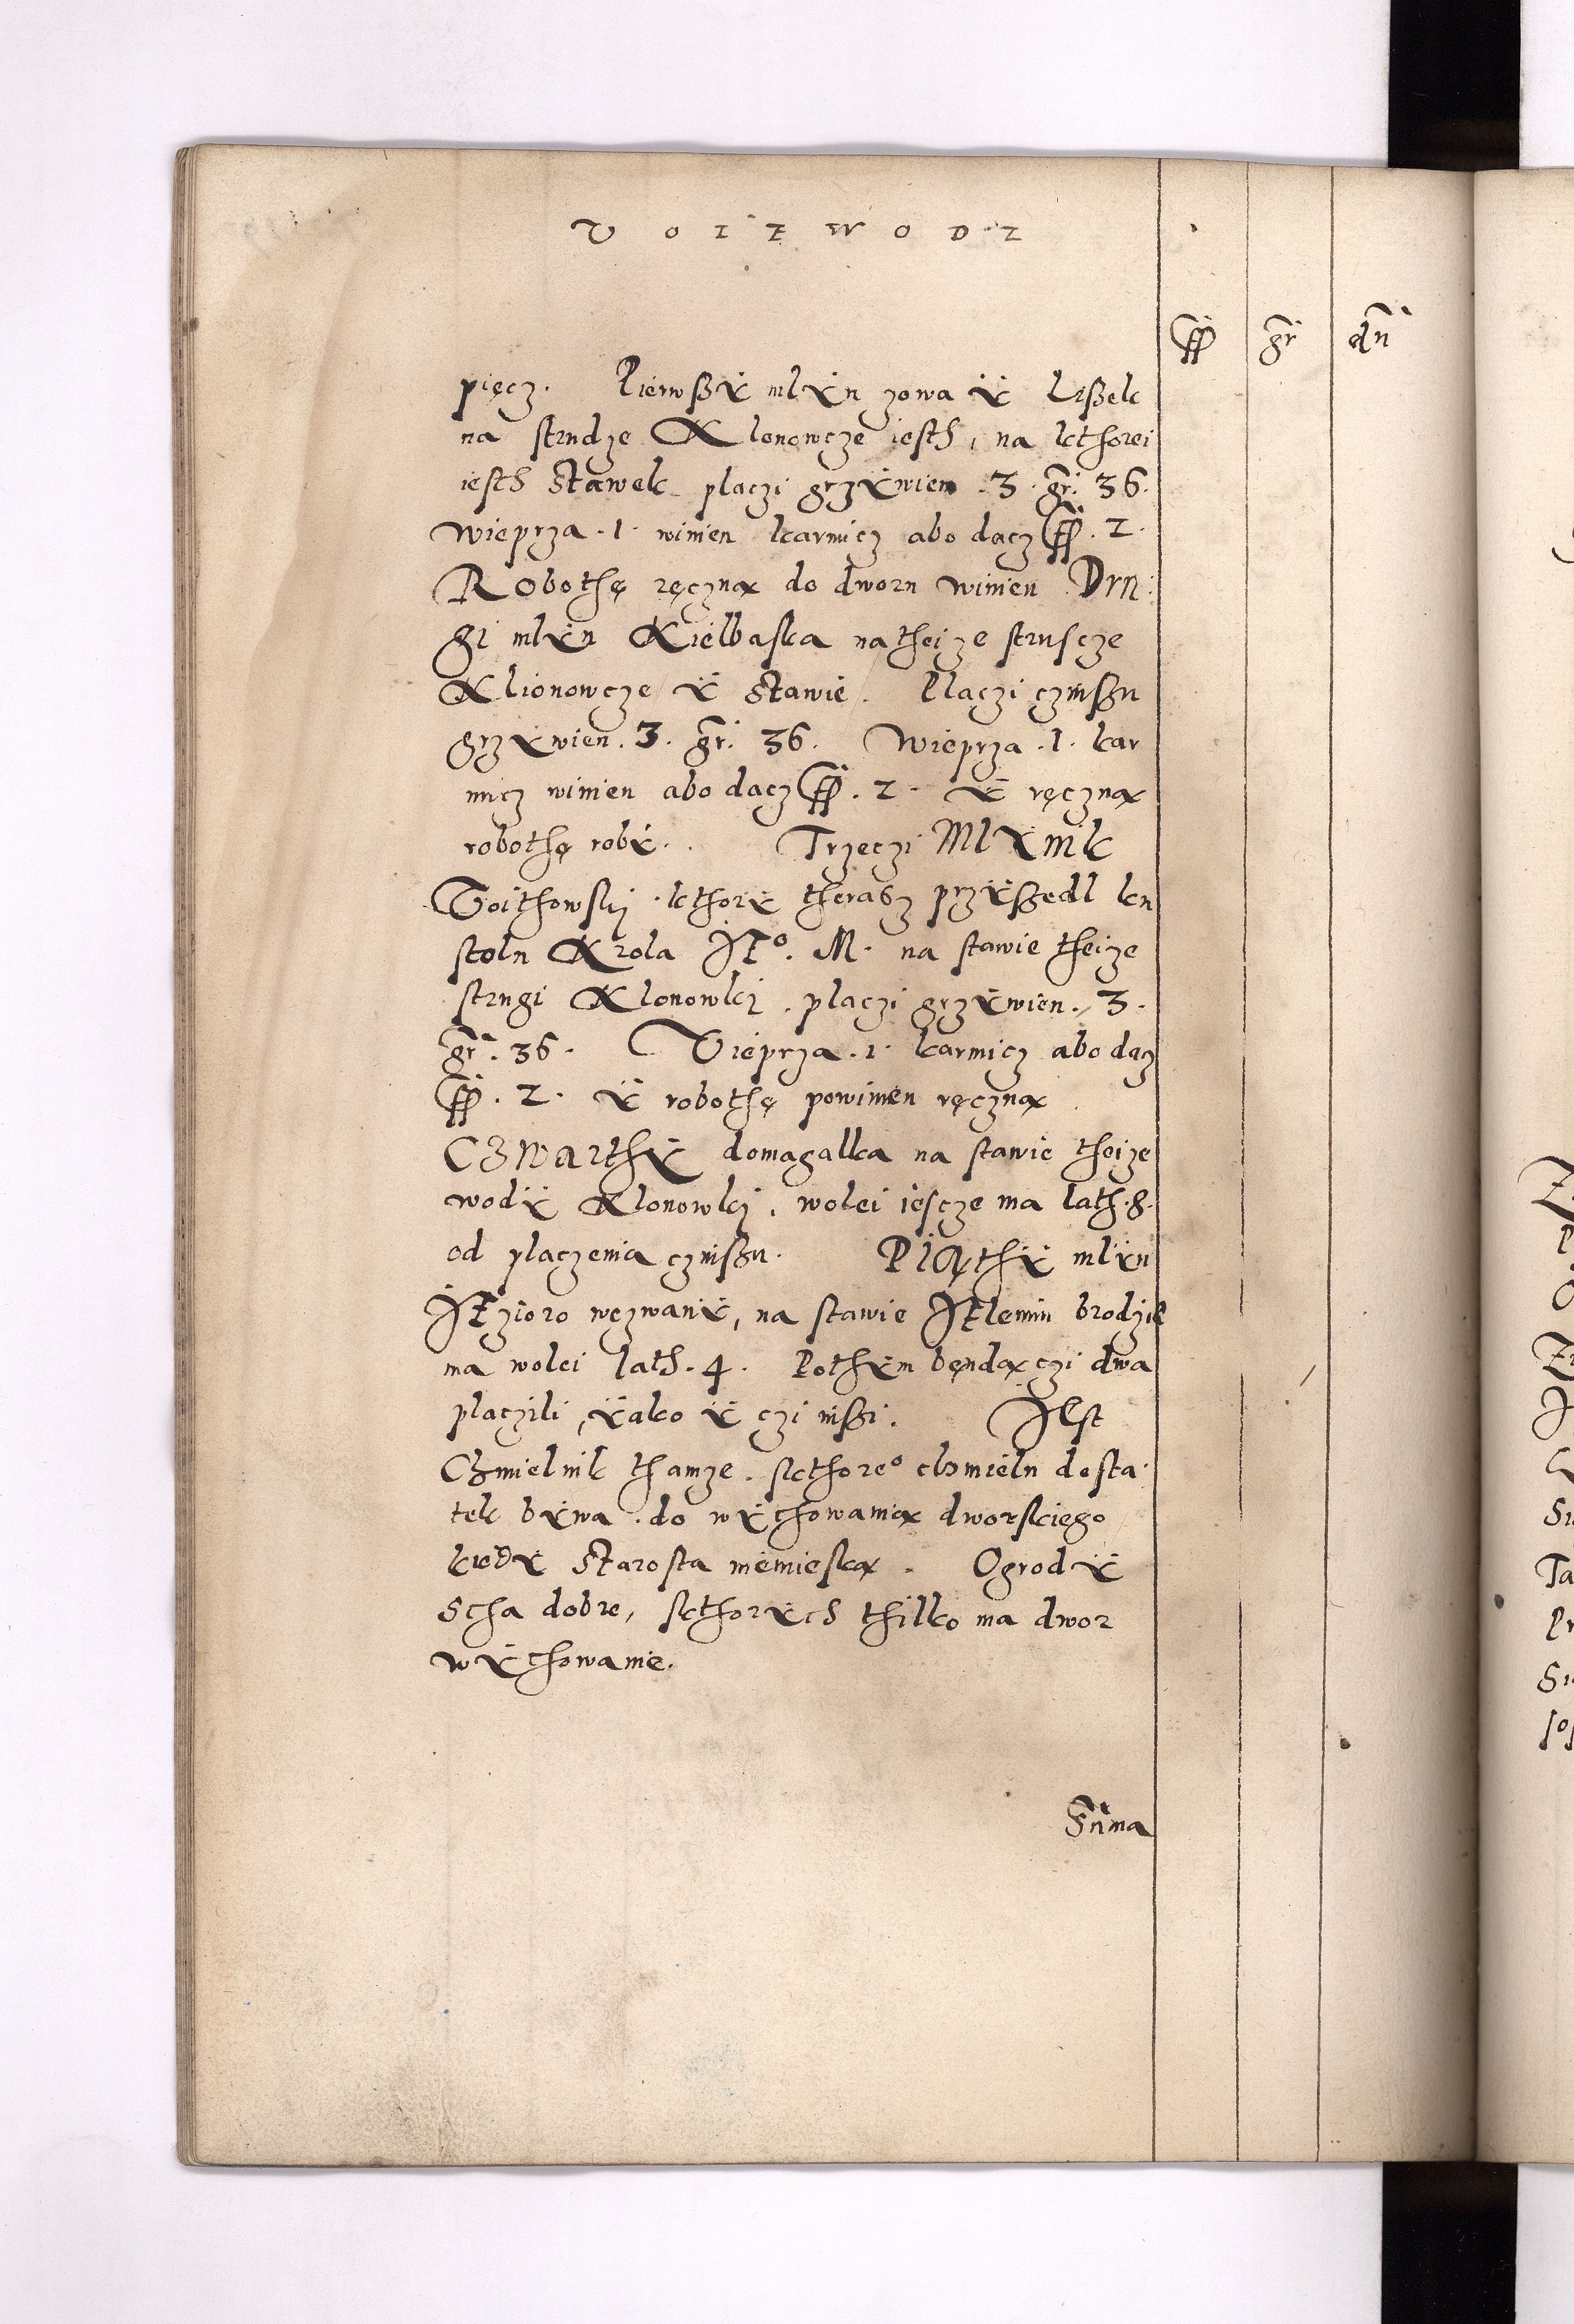 V O I E W O D Z
ff gr dn
pięcz. Pierwßÿ mlÿn zowa ÿ Lißek
na strudze Klonowcze iesth, na kthorei
iesth Stawek placzi grzÿwien .3. gr. 36.
Wieprza .1. winien karmicz abo dacz ff. 2.
Robothę ręczną do dworu winien Dru
gi mlÿn Kielbaska na theize struscze
Klionowcze ÿ Stawie. Placzi czinßu
grzÿwien. 3. gr. 36. Wieprza .1. kar
micz winien abo dacz ff. 2. ÿ ręczną
robothę robÿ. Trzeczi Mlÿnik
Voithowskj kthorÿ therasz przÿßedl ku
stolu Krola JE°. M. na stawie theize
strugi Klonowkj, placzi grzÿwien. 3.
gr. 36. Vieprza .1. karmicz abo dacz
ff. 2. ÿ robothę powinien ręczną
Czwarthÿ domagalka na stawie theize
wodÿ Klonowkj, wolei iescze ma lath .8.
od placzenia czinßu. Piąthÿ mlÿn
JEzioro wezwanÿ, na stawie JElenim brodzie
ma wolei lath. 4. Pothÿm będączi dwa
placzili, ÿako ÿ czi inßi. JEst
Chmielnik thamze. skthore° chmielu dosta
tek bÿwa do wÿchowania dworskiego
kiedÿ Starosta niemieska. Ogrodÿ
Scha dobre, skthorÿch thilko ma dwor
wÿchowanie.
Suma